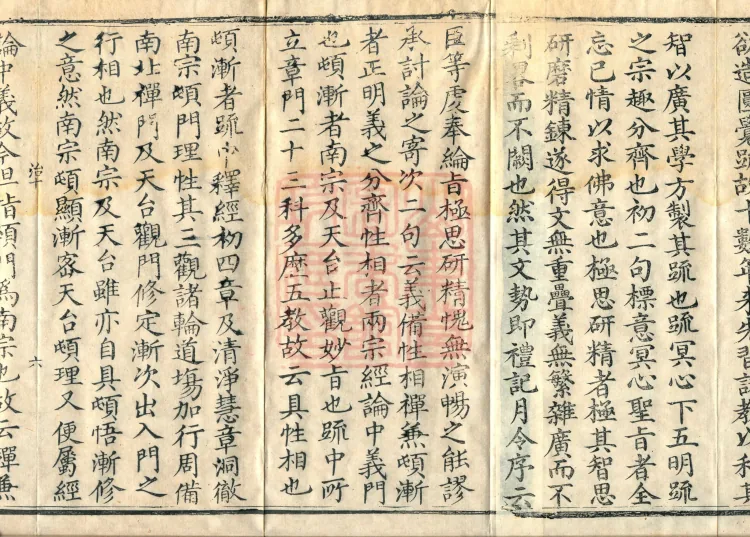 欲造圓覺疏故十數年來先習諸教以利其
智以廣其學方製其疏也疏冥心下五明疏
之宗趣分齊也初二句標意冥心聖旨者全
忘已情以求佛意也極思研精者極其智思
研磨精鍊遂得文無重疊義無繁雜廣而不
剩畧而不闕也然其文勢即禮記月令序云
臣等虔奉綸旨極思研精愧無演暢之能謬
承討論之寄次二句云義備性相禪兼頓漸
者正明義之分齊性相者兩宗經論中義門
也頓漸者南宗及天台止觀妙旨也疏中所
立章門二十三科多歷五教故云具性相也
頓漸者疏中釋經初四章及清淨慧章洞徹
南宗頓門理性其三觀諸輪道場加行周備
南北禪門及天台觀門修定漸次出入門之
行相也然南宗及天台雖亦自具頓悟漸修
之意然南宗頓顯漸密天台頓理又便屬經
六
論中義故今但指頓門爲南宗也故云禪兼